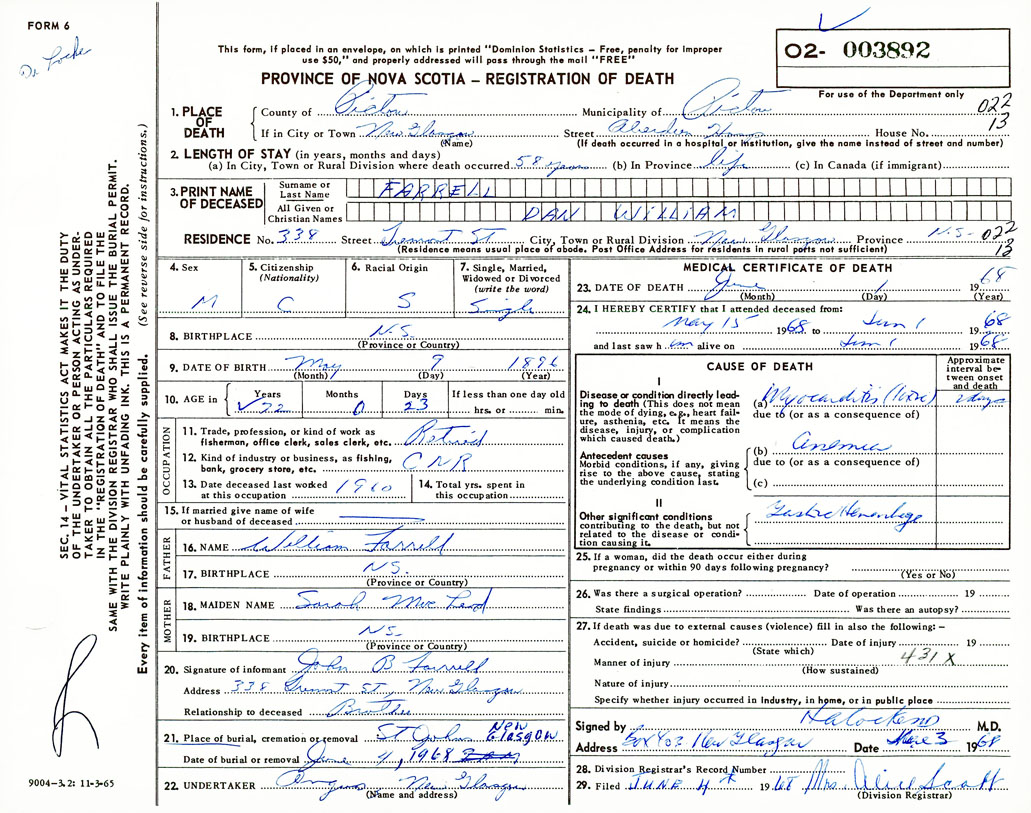 FORM 6
This form, if placed in an envelope, on which is printed "Dominion Statistics – Free, penalty for improper
use $50," and properly addressed will pass through the mail "FREE"
O2- 003892
PROVINCE OF NOVA SCOTIA – REGISTRATION OF DEATH
For use of the Department only
022
13
1. PLACE OF DEATH
County of Pictou Municipality of Pictou
If in City or Town New Glasgow Street Aberdeen Hosp House No.
(Name) (If death occurred in a hospital or institution, give the name instead of street and number)
2. LENGTH OF STAY (in years, months and days)
(a) In City, Town or Rural Division where death occurred 58 years (b) In Province life (c) In Canada (if immigrant)
3. PRINT NAME OF DECEASED
Surname or Last Name FARRELL
All Given or Christian Names DAN WILLIAM
RESIDENCE No. 338 Street Tremont St City, Town or Rural Division New Glasgow Province N.S- 022
13
(Residence means usual place of abode. Post Office Address for residents in rural parts not sufficient)
4. Sex
M
5. Citizenship (Nationality)
C
6. Racial Origin
S
7. Single, Married, Widowed or Divorced (write the word)
Single
8. BIRTHPLACE N.S.
(Province or Country)
9. DATE OF BIRTH May 9 1896
(Month) (Day) (Year)
10. AGE in Years 72 Months 0 Days 23 If less than one day old
hrs. or min.
OCCUPATION
11. Trade, profession, or kind of work as
fisherman, office clerk, sales clerk, etc. Retired
12. Kind of industry or business, as fishing,
bank, grocery store, etc. CNR
13. Date deceased last worked
at this occupation 1960
14. Total yrs. spent in
this occupation
15. If married give name of wife
or husband of deceased
FATHER
16. NAME William Farrell
17. BIRTHPLACE N.S.
(Province or Country)
MOTHER
18. MAIDEN NAME Sarah Mac Leod
19. BIRTHPLACE N.S.
(Province or Country)
20. Signature of informant John B Farrell
Address 338 Tremont St, New Glasgow
Relationship to deceased Brother
21. Place of burial, cremation or removal St Johns New Glasgow
Date of burial or removal June 4, 1968
22. UNDERTAKER New Glasgow
(Name and address)
MEDICAL CERTIFICATE OF DEATH
23. DATE OF DEATH June 1 1968
(Month) (Day) (Year)
24. I HEREBY CERTIFY that I attended deceased from:
May 15 1968 to Jun 1 1968
and last saw him alive on Jun 1 1968
CAUSE OF DEATH
Approximate interval between onset and death
I
Disease or condition directly leading to death (This does not mean the mode of dying, e.g., heart failure, asthenia, etc. It means the disease, injury, or complication which caused death.)
(a) Myocarditis (Toxic) 2 days
due to (or as a consequence of)
Antecedent causes
Morbid conditions, if any, giving rise to the above cause, stating the underlying condition last.
(b) Anemia
due to (or as a consequence of)
(c)
II
Other significant conditions
contributing to the death, but not related to the disease or condition causing it.
Gastric Hemorrhage
25. If a woman, did the death occur either during
pregnancy or within 90 days following pregnancy?
(Yes or No)
26. Was there a surgical operation? Date of operation 19
State findings Was there an autopsy?
27. If death was due to external causes (violence) fill in also the following: –
Accident, suicide or homicide? Date of injury 19
(State which)
431 X
Manner of injury
(How sustained)
Nature of injury
Specify whether injury occurred in Industry, in home, or in public place
Signed by M.D.
Address Box 402 New Glasgow Date June 3 1968
28. Division Registrar's Record Number
29. Filed JUNE 4th 1968 Mrs. Alice Scott
(Division Registrar)
SEC. 14 – VITAL STATISTICS ACT MAKES IT THE DUTY
OF THE UNDERTAKER OR PERSON ACTING AS UNDER-
TAKER TO OBTAIN ALL THE PARTICULARS REQUIRED
IN THE "REGISTRATION OF DEATH" AND TO FILE THE
SAME WITH THE DIVISION REGISTRAR WHO SHALL ISSUE THE BURIAL PERMIT.
WRITE PLAINLY WITH UNFADING INK. THIS IS A PERMANENT RECORD.
Every item of information should be carefully supplied. (See reverse side for instructions.)
9004–3.2: 11-3-65